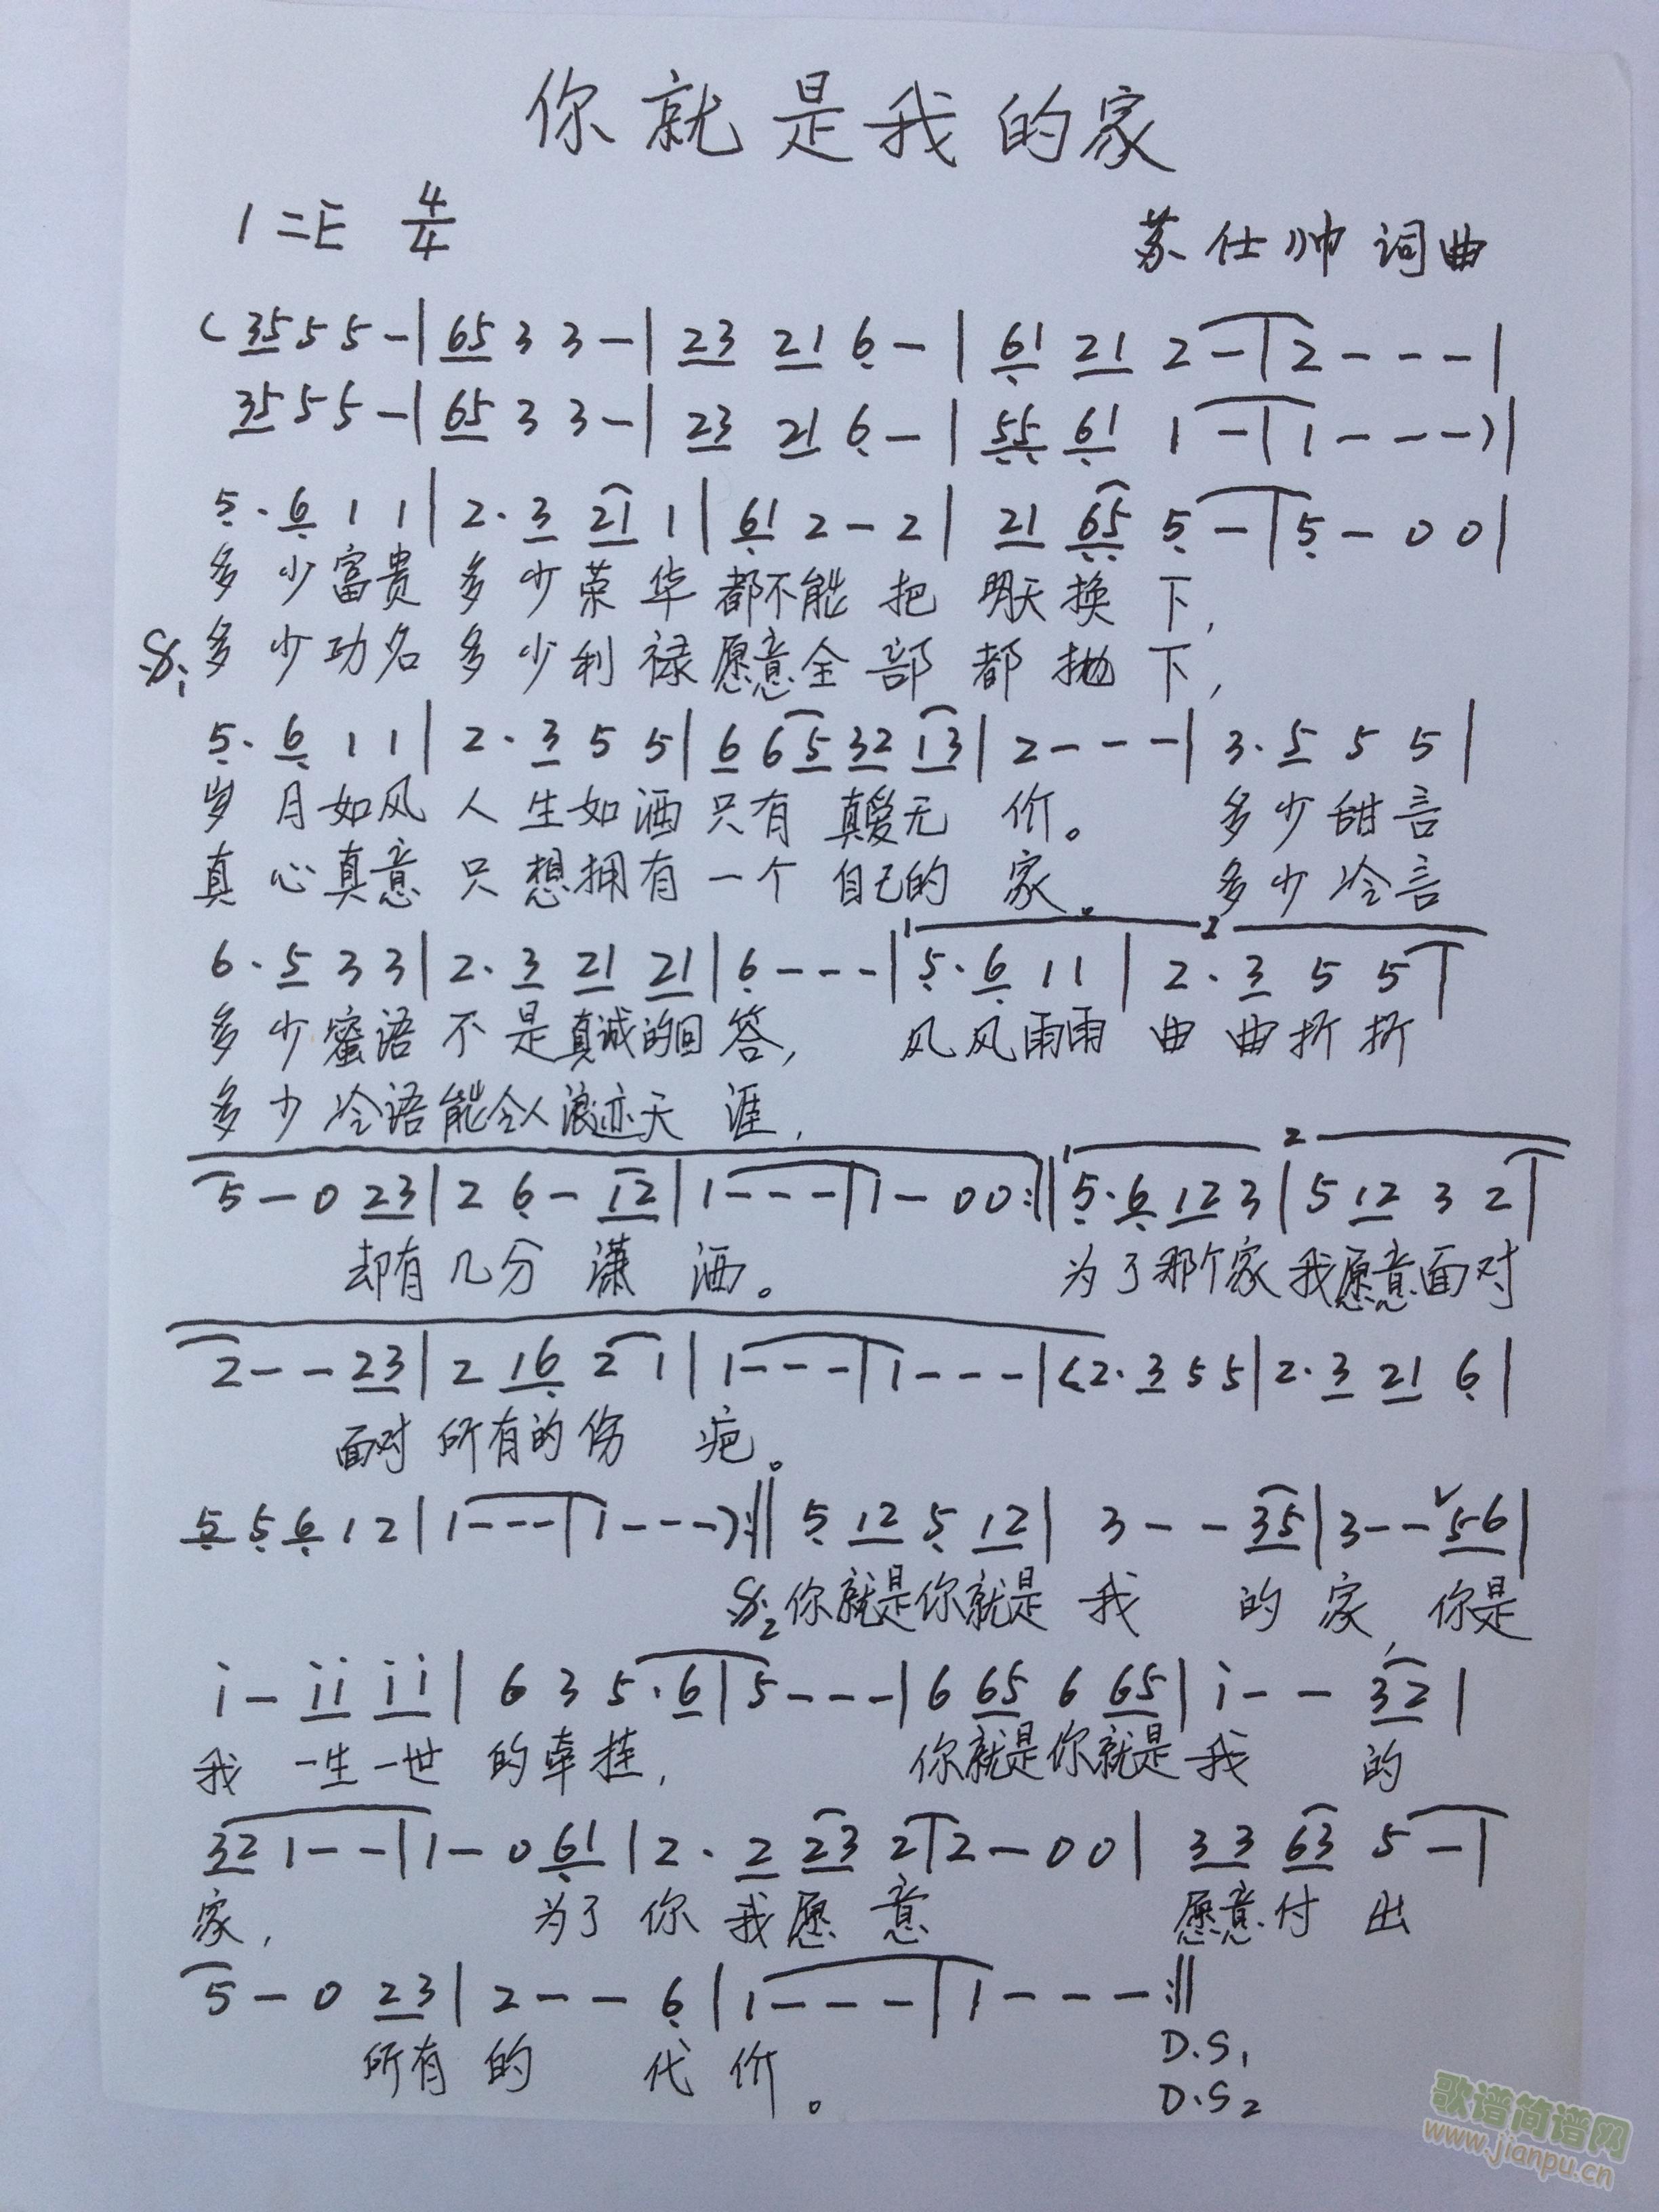 你就是我的家
1=E 4/4
苏仕帅 词曲
( 35 5 5 - | 65 3 3 - | 23 21 6 - | 61 21 2 - | 2 - - - |
35 5 5 - | 65 3 3 - | 23 21 6 - | 55 61 1 - | 1 - - - ) |
5 · 6 1 1 | 2 · 3 21 1 | 61 2 - 2 | 21 65 5 - | 5 - 0 0 |
多少富贵 多少荣华 都不能把 明天换下,
多少功名 多少利禄 愿意全部 都抛下,
5 · 6 1 1 | 2 · 3 5 5 | 6 6 5 32 13 | 2 - - - | 3 · 5 5 5 |
岁月如风 人生如洒 只有真爱无价。 多少甜言
真心真意 只想拥有 一个自己的家。 多少冷言
1 2
6 · 5 3 3 | 2 · 3 21 21 | 6 - - - | 5 · 6 1 1 | 2 · 3 5 5 |
多少蜜语 不是真诚的回答, 风风雨雨 曲曲折折
多少冷语 能令人浪迹天涯,
1 2
5 - 0 23 | 2 6 - 12 | 1 - - - | 1 - 0 0 :|| 5 · 6 12 3 | 5 12 3 2 |
却有几分 潇洒。 为了那个家 我愿意面对
2 - - 23 | 2 16 2 1 | 1 - - - | 1 - - - | ( 2 · 3 5 5 | 2 · 3 21 6 |
面对 所有的伤疤。
5 5 6 1 2 | 1 - - - | 1 - - - ) :|| 5 12 5 12 | 3 - - 35 | 3 - - 56 |
2 你就是你就是 我 的家, 你是
i - ii ii | 6 3 5 · 6 | 5 - - - | 6 65 6 65 | i - - 32 |
我 一生一世 的牵挂, 你就是你就是 我 的
32 1 - - | 1 - 0 61 | 2 · 2 23 2 | 2 - 0 0 | 33 63 5 - |
家, 为了 你 我愿意 愿意付出
5 - 0 23 | 2 - - 6 | 1 - - - | 1 - - - :||
所有 的 代价。
D.S1
D.S2
歌谱简谱网
www.jianpu.cn